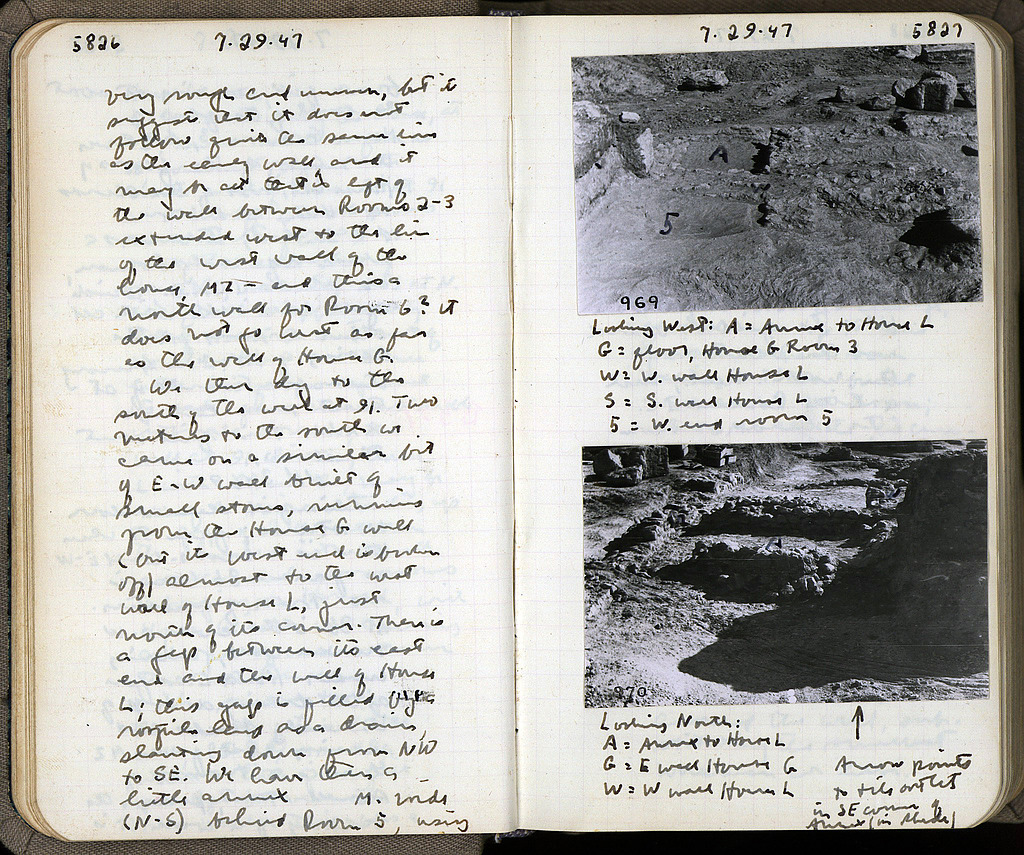 5826 7.29.47
very rough and uneven, but it
suggest that it does not
follow quite the same line
as the early wall, and it
may be that
the wall between Rooms 2-3
extended west to the line
of the west wall of the
house, - and thus a
north wall for Room 6? it
does not go east as far
as the wall of House G.
We then dig to the
south of the wall at 91. Two
meters to the south we
came on a similar bit
of E-W wall built of
small stones, running
from the House G wall
(but its west end is broken
off) almost to the west
wall of House L, just
north of its corner. There is
a gap between its east
end and the wall of House
L; this gap is filled
rooftiles laid as a drain,
slanting down from NW
to SE. We have thus a
little annex M. wide
(N-S) behind Room 5, using
7.29.47 5827
A
5
969
Looking West: A = Annex to House L
G = floor, House G Room 3
W = W. wall House L
S = S. wall House L
5 = W. end room 5
970
Looking North:
A = Annex to House L
G = E wall House G
W = W wall House L
Arrow points
to tile outlet
in SE corner of
Annex (in shade)